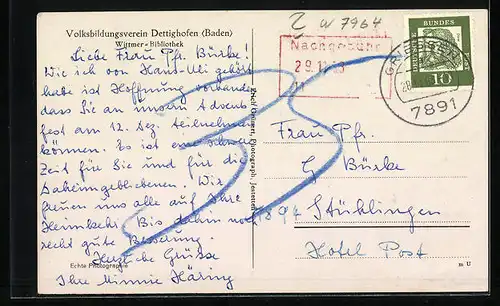 Volksbildungsverein Dettighofen (Baden)
Wittmer-Bibliothek
Liebe Frau Pfr. Bürke!
Wie ich von Hans-Ueli gehört
habe ist Hoffnung vorhanden
dass Sie an unserm Advents
fest am 12. Dez. teilnehmen
können. Es ist eine schwere
Zeit für Sie und für die
Daheimgebliebenen. Wir
freuen uns alle auf Ihre
Heimkehr! Bis dahin noch
recht gute Besserung.
Herzliche Grüsse
Ihre Minnie Häring
Echte Photographie
Photograph, Jestetten
a 7964
Nachgebühr
DEUTSCHE BUNDESPOST
10
GRIESSEN
7891
Frau Pfr.
G Bürke
7894 Stühlingen
Hotel Post
m U